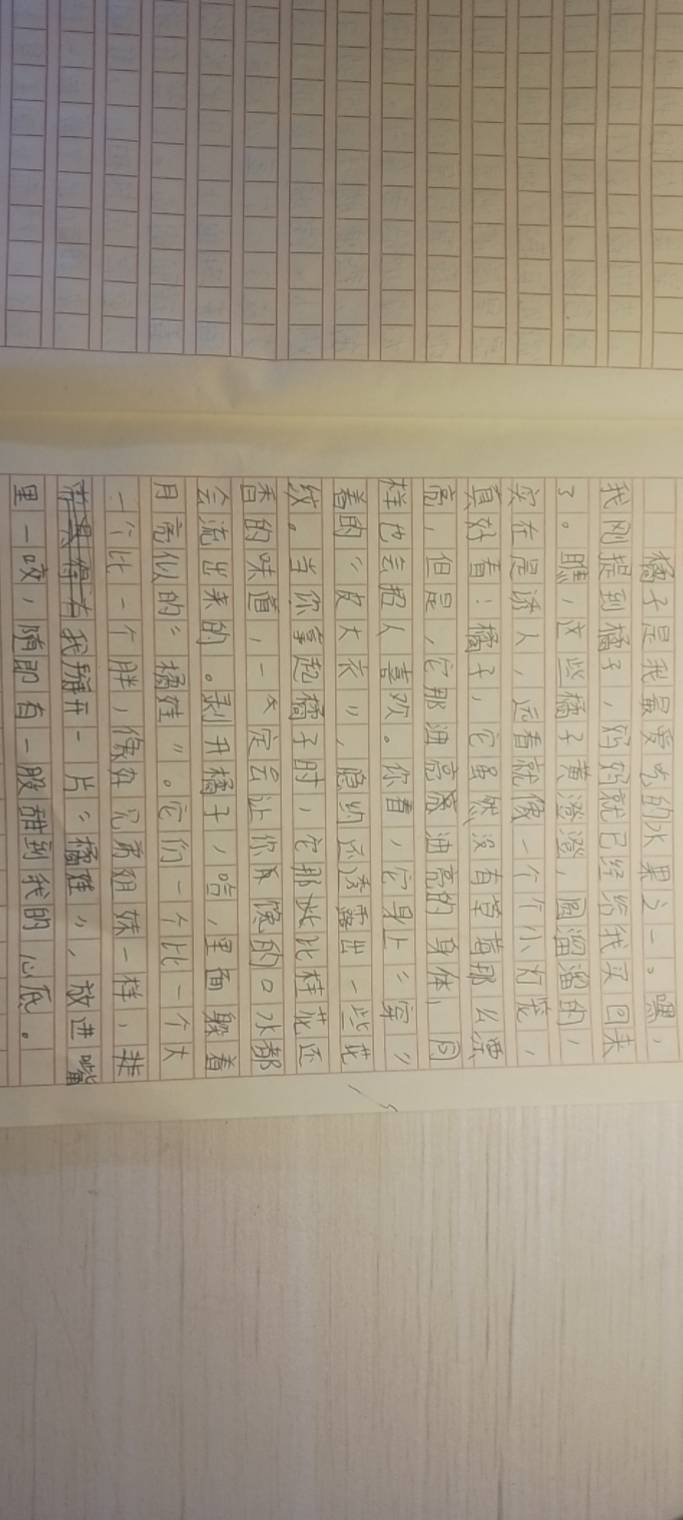 橘子是我最爱吃的水果之一。嘿，
我刚提到橘子，妈妈就已经给我买回来
了。瞧，这些橘子黄澄澄，圆溜溜的，
实在是诱人，远看就像一个个小灯笼，
真好看！橘子，它虽然没有草莓那么漂
亮，但是，它那油亮油亮的身体，同
样也会招人喜欢。你看，它身上“穿”
着的“皮大衣”，隐约还透露出一些花
纹。当你拿起橘子时，它那比桂花还
香的味道，一定会让你馋的口水都
会流出来的。剥开橘子，哈，里面躲着
月亮似的“橘娃”。它们一个比一个大
一个比一个胖，像兄弟姐妹一样，
我掰开一片“橘娃”，放进嘴
里一咬，随即有一股甜到我的心底。